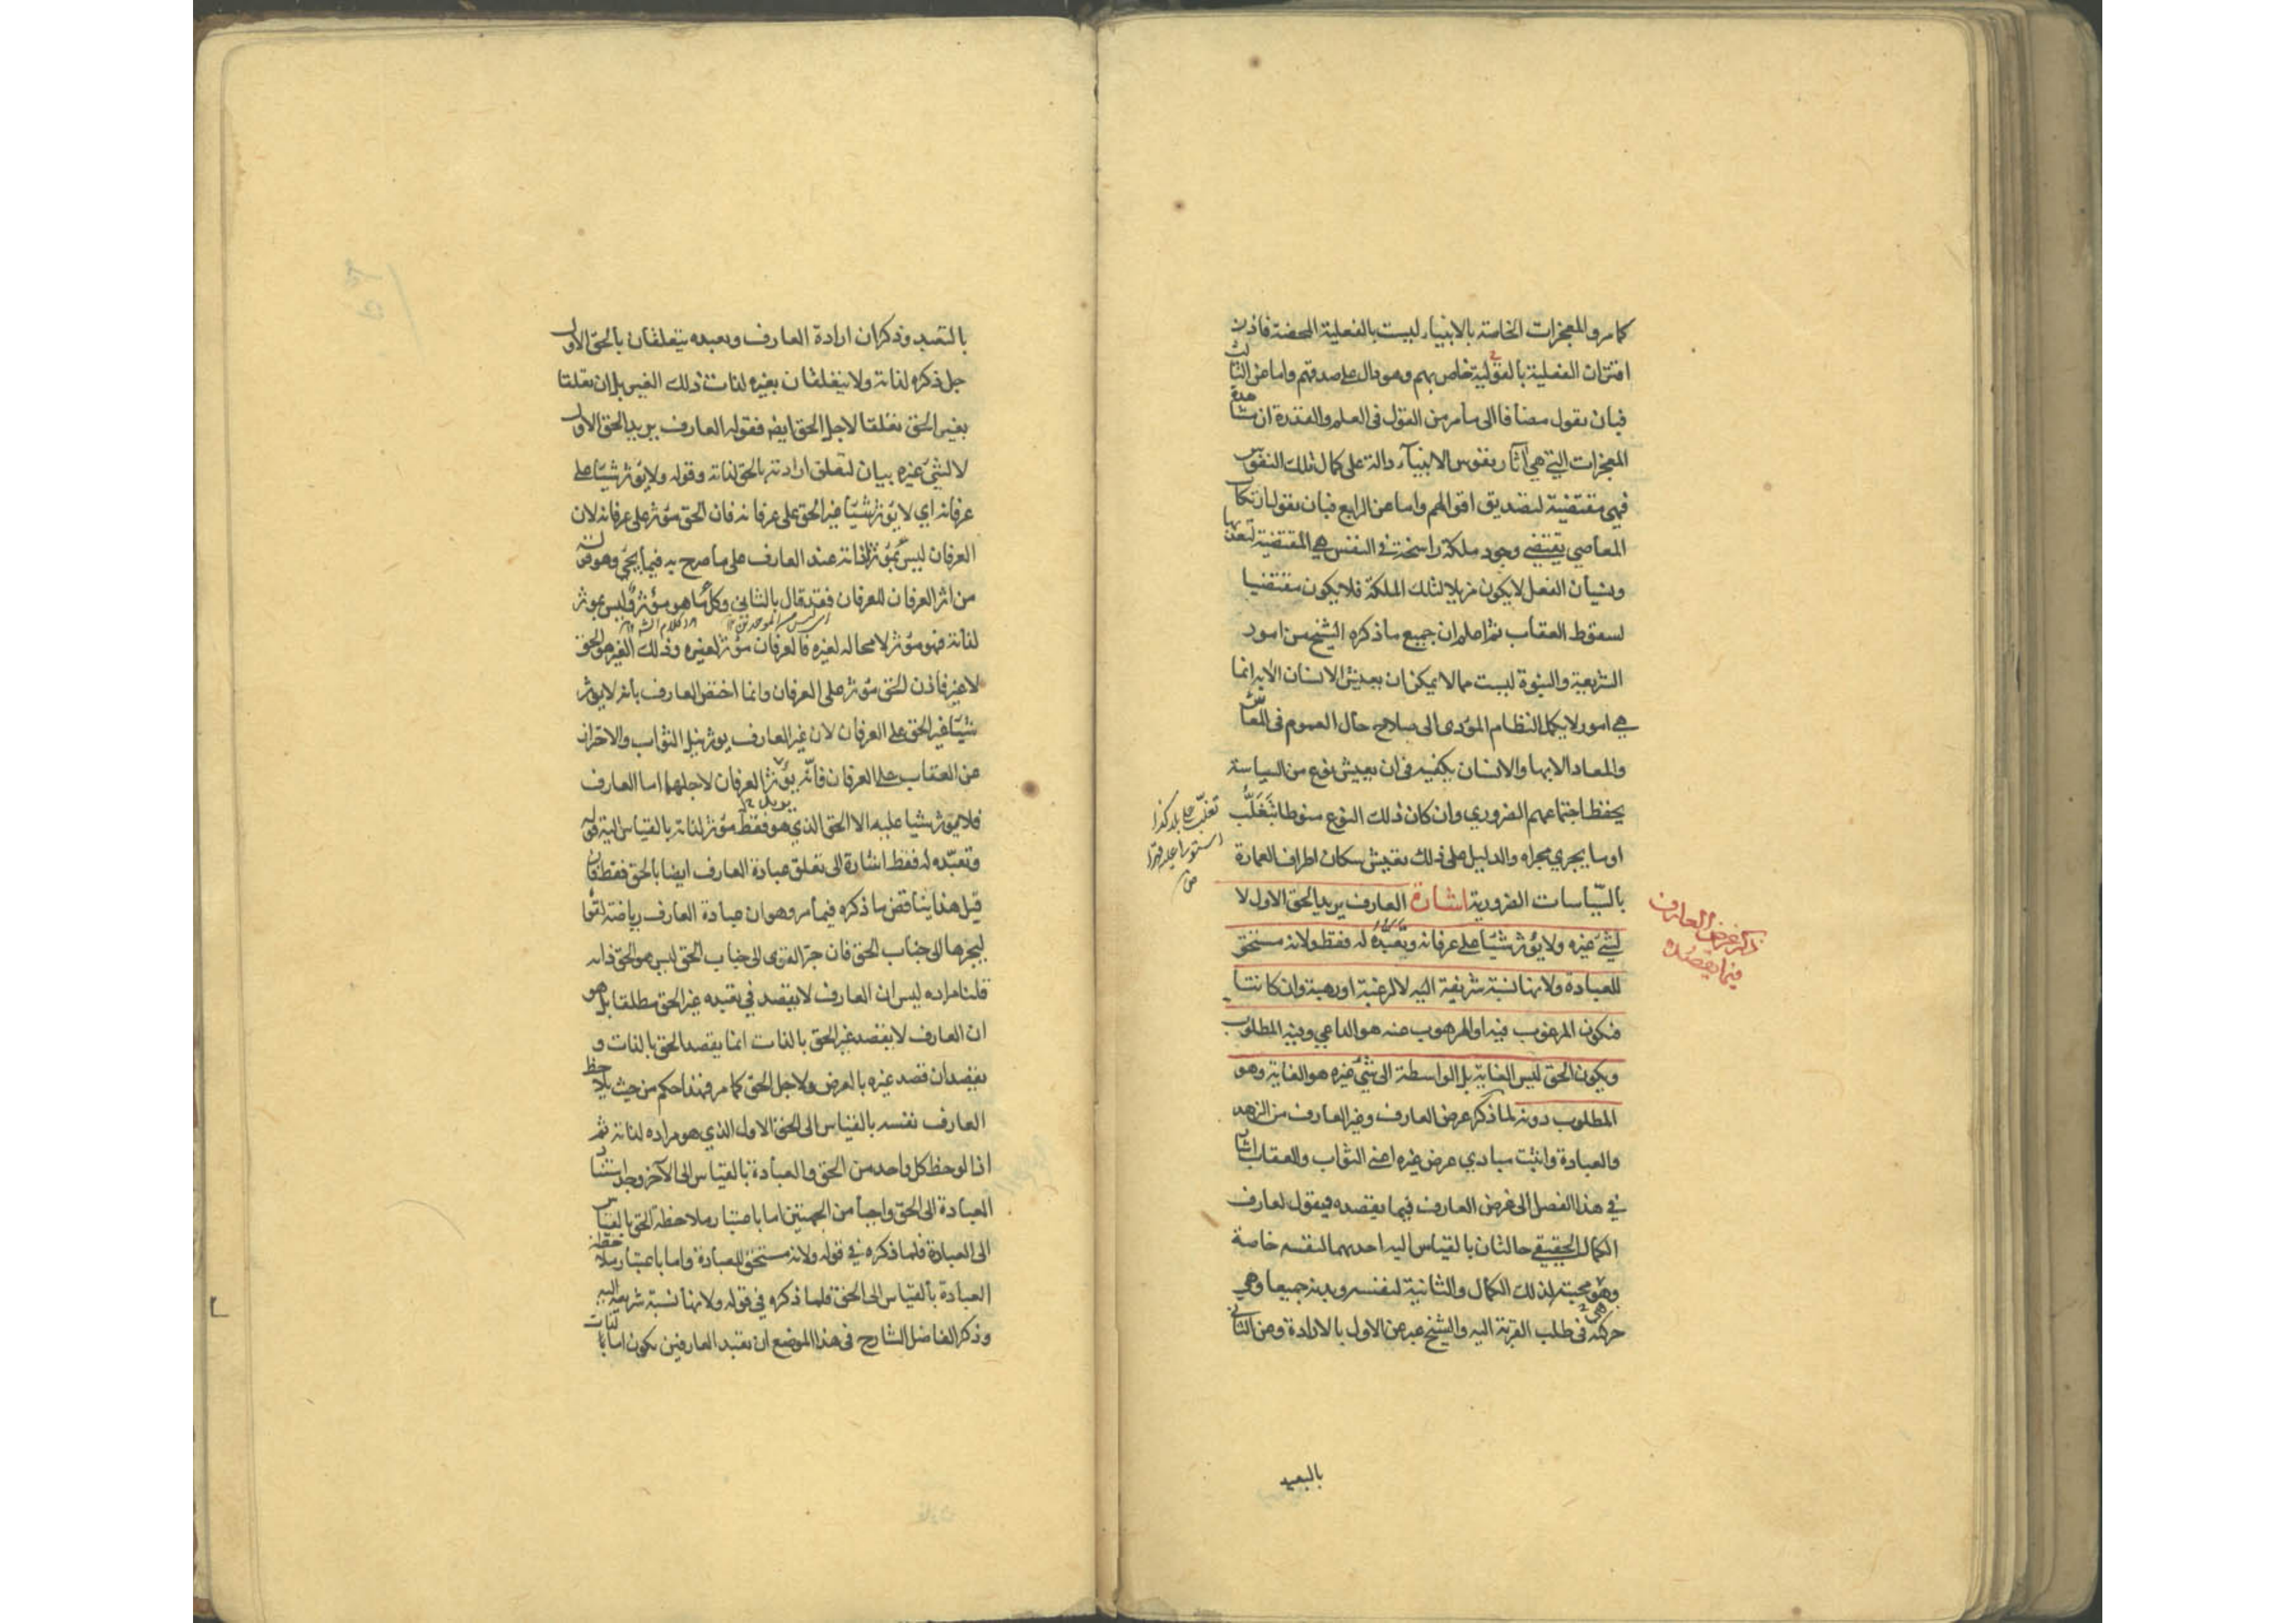 كما مر والمعجزات الخاصة بالانبياء ليست بالفعلية المحضة فاذن
اقتران الفعلية بالقولية خاص بهم وهو دال على صدقهم واما عن الثالث
فبان نقول مضافا الى ما مر من القول فى العلم والقدرة ان مشاهدة
المعجزات التي هي آثار نفوس الانبيآء دالة على كمال تلك النفوس
فهي مقتضية لتصديق اقوالهم واما عن الرابع فبان نقول ارتكاب
المعاصي يقتضي وجود ملكة راسخة في النفس هي المقتضية لتعذيبها
ونسيان الفعل لا يكون مزيلا لتلك الملكة فلا يكون مقتضيا
لسقوط العقاب ثم اعلم ان جميع ما ذكره الشيخ من امور
الشريعة والنبوة ليست مما لا يمكن ان يعيش الانسان الا به انما
هي امور لا يكمل النظام المؤدى الى صلاح حال العموم فى المعاش
والمعاد الا بها والانسان يكفيه فى ان يعيش نوع من السياسة
يحفظ اجتماعهم الضروري وان كان ذلك النوع منوطا بتغلّب
او ما يجري مجراه والدليل على ذلك تعيش سكان اطراف العمارة
بالسّياسات الضرورية اشارة العارف يريد الحق الاول لا
لشيء غيره ولا يؤثر شيئا على عرفانه وتعبّده له فقط ولانه مستحق
للعبادة ولانها نسبة شريفة اليه لا لرغبة او رهبة وان كانتا
فيكون المرغوب فيه او المرهوب عنه هو الداعي وفيه المطلوب
ويكون الحق ليس الغاية بل الواسطة الى شئ غيره هو الغاية وهو
المطلوب دونه لما ذكر عرض العارف وغير العارف من الزهد
والعبادة واثبت مبادي عرض غيره اعني الثواب والعقاب اشار
في هذا الفصل الى غرض العارف فيما يقصده فيقول لعارف
الكمال الحقيقي حالتان بالقياس اليه احدهما لنفسه خاصة
وهو محبته لذلك الكمال والثانية لنفسه وبدنه جميعا وهي
حركته فى طلب القربة اليه والشيخ عبر عن الاول بالارادة وعن الثاني
تغلّب على بلد كذا
استولى عليه قهرا
ص
ذكر غرض العارف
فيما يقصده
بالتعبد
بالتعبد وذكر ان ارادة العارف وتعبده يتعلقان بالحق الاول
جل ذكره لذاته ولا يتعلقان بغيره لذات ذلك الغير بل ان تعلقتا
بغير الحق تعلقتا لاجل الحق ايضا فقوله العارف يريد الحق الاول
لا لشئ غيره بيان لتعلق ارادته بالحق لذاته وقوله ولا يؤثر شيئا على
عرفانه اي لا يؤثر شيئا غير الحق على عرفانه فان الحق مؤثر على عرفانه لان
العرفان ليس بمؤثر لذاته عند العارف على ما صرح به فيما يجئ وهو قوله
من اثر العرفان للعرفان فقد قال بالثاني وكل ما هو مؤثر وليس بموثر
لذاته فهو مؤثر لا محالة لغيره فالعرفان مؤثر لغيره وذلك الغير هو الحق
لا غير فاذن الحق مؤثر على العرفان وانما اختص العارف بانه لا يؤثر
شيئا غير الحق على العرفان لان غير العارف يوثر نيل الثواب والاحتراز
عن العقاب على العرفان فانّه يؤثر العرفان لاجلهما اما العارف
فلا يوثر شيا عليه الا الحق الذي هو فقط مؤثر لذاته بالقياس اليه قوله
وتعبّده له فقط اشارة الى تعلق عبادة العارف ايضا بالحق فقط فان
قيل هذا يناقض ما ذكره فيما مر وهو ان عبادة العارف رياضة لقواه
ليجرها الى جناب الحق فان جر القوى الى جناب الحق ليس هو الحق ذاته
قلنا مراده ليس ان العارف لا يقصد في تعبده غير الحق مطلقا بل هو
ان العارف لا يقصد غير الحق بالذات انما يقصد الحق بالذات و
يقصد ان قصد غيره بالعرض ولاجل الحق كما مر فهذا حكم من حيث يلاحظ
العارف نفسه بالقياس الى الحق الاول الذي هو مراده لذاته ثم
اذا لوحظ كل واحد من الحق والعبادة بالقياس الى الآخر وجد استناد
العبادة الى الحق واجبا من الجهتين اما باعتبار ملاحظة الحق بالقياس
الى العبادة فلما ذكره في قوله ولانه مستحق للعبادة واما باعتبار ملاحظة
العبادة بالقياس الى الحق فلما ذكره في قوله ولانها نسبة شريفة اليه
وذكر الفاضل الشارح فى هذا الموضع ان تعبد العارفين يكون اما لذات